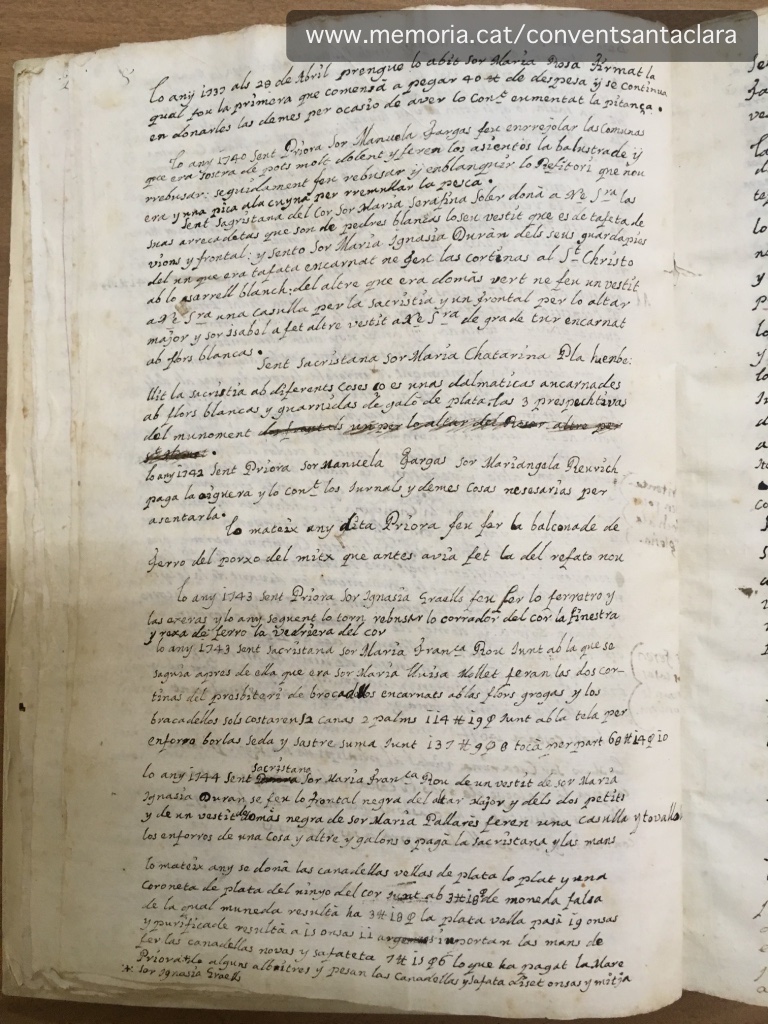 www.memoria.cat/conventsantaclara
lo any 1737 als 28 de Abril prengue lo abit sor Maria Rosa Armat la
qual fou la primera que comensà a pegar 40 ₶ de despesa y se continua
en donarlos las demes per ocasio de aver lo Conᵗ eumentat la pitança.
lo any 1740 sent Priora Sor Manuela Fargas feu enrrejolar las Comunas
que era rostra de pots molt dolent y feren los asientos la balustrade y
rrebusar: seguidament feu rebusar y enblanquir lo Refitori que nou
era y una pica a la cuyna per rremullar la pesca.
sent sagristana del Cor Sor Maria Serafina Soler donà a Nᵉ Sʳᵃ las
suas arrecadetas que son de pedres blancas lo seu vestit que es de tafeta de
vions y frontal: y sento Sor Maria Ignasia Duran dels seus guardapies
del un que era tafata encarnat ne feu las cortinas al Sᵗ Christo
ab lo sarrell blanch: del altre que era domàs vert ne feu un vestit
a Nᵉ Sʳᵃ una casulla per la sacristia y un frontal per lo altar
major y sor isabel a fet altre vestit a Nᵉ Sʳᵃ de gra de tur encarnat
ab flors blancas.
sent Sacristana Sor Maria Chatarina Pla huenbe:
llit la sacristia ab diferents coses ço es unas dalmaticas ancarnades
ab flors blancas y guarnidas de galo de plata. las 3 prespechtivas
del munoment los frontals un per lo altar del Roser altre per
lo any 1742 sent Priora Sor Manuela Fargas Sor Mariangela Reurich
paga la aiguera y lo conᵗ los Jurnals y demes Cosas nesesarias per
asentarla.
lo mateix any dita Priora feu fer la balconade de
ferro del porxo del mitx que antes avia fet la del refato nou
lo any 1743 sent Priora Sor Ignasia Graells feu fer lo ferratro y
las exeras y lo any seguent lo torn rebusar lo corrador del cor la finestra
y rexa de ferro la vedriera del cor
lo any 1743 sent sacristana sor Maria Franᶜᵃ Riu Junt ab la que se
saguia apres de ella que era sor Maria Lluisa Mollet feran las dos cor-
tinas del prosbiteri de brocadellos encarnats ab las flors grogas y los
bracadellos sols costaren 52 canas 2 palms 114 ₶ 19 ꝯ Junt ab la tela per
enforro borlas seda y sastre suma Junt 137 ₶ 9 ꝯ 8 tocà per part 68 ₶ 14 ꝯ 10
sacristana
lo any 1744 sent Priora Sor Maria Franᶜᵃ Riu de un vestit de sor Maria
Ignasia Duran se feu lo frontal negra del altar Major y dels dos petits
y de un vestit domàs negra de sor Maria Pallares feren una casulla y tovalla
los enforros de una Cosa y altre y galons o pagà la sacristana y las mans
lo mateix any se donà las canadellas vellas de plata lo plat y una
Coroneta de plata del ninyo del cor junt ab 3 ₶ 18 ꝯ de moneda falsa
de la qual muneda resultà ha 3 ₶ 18 ꝯ la plata vella pasà 19 onsas
y purificade resultà a 15 onsas 11 argensos inportan las mans de
fer las canadellas novas y safateta 7 ₶ 15 ꝯ 6 lo que ha pagat la Mare
Priora* de alguns albitres y pesan las Canadellas y safata diset onsas y mitja
* sor Ignasia Graells